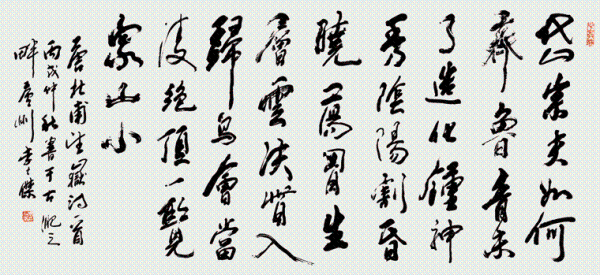 岱宗夫如何
齊魯青未
了造化鍾神
秀陰陽割昏
曉蕩胸生
層雲決眥入
歸鳥會當
凌絕頂一覽
眾山小
唐杜甫望嶽詩一首
丙戌仲秋書于古肥之
畔廬州李傑